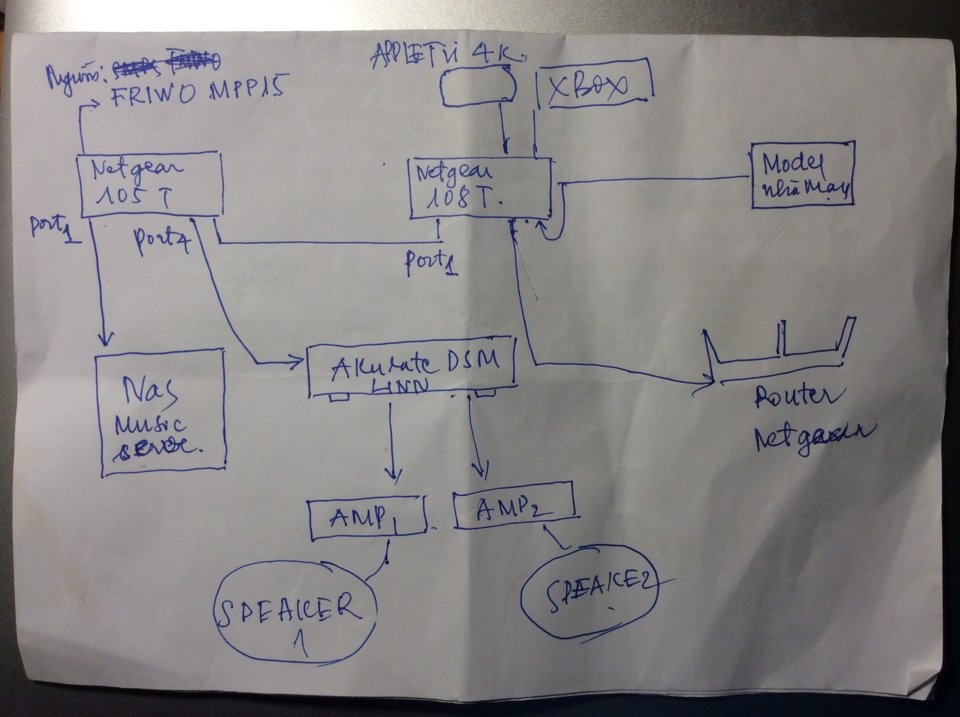 Nguồn:
FRIWO MPP15
APPLETVi 4K.
XBOX
Netgear
105 T
Netgear
108 T.
Model
nhà Mạng
Port1
Port4
Port1
Nas
Music
serve.
Akurate DSM
LINN
Router
Netgear
AMP1
AMP2
SPEAKER
1
SPEAKE2